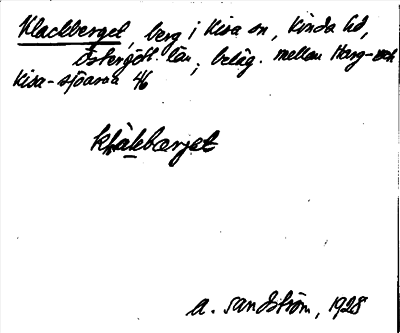 Klackberget, berg i Kisa sn, Kinda hd,
Östergötl. län, beläg. mellan Harg- och
Kisa-sjöarna 46
klakbærjet
A. Sandström, 1928